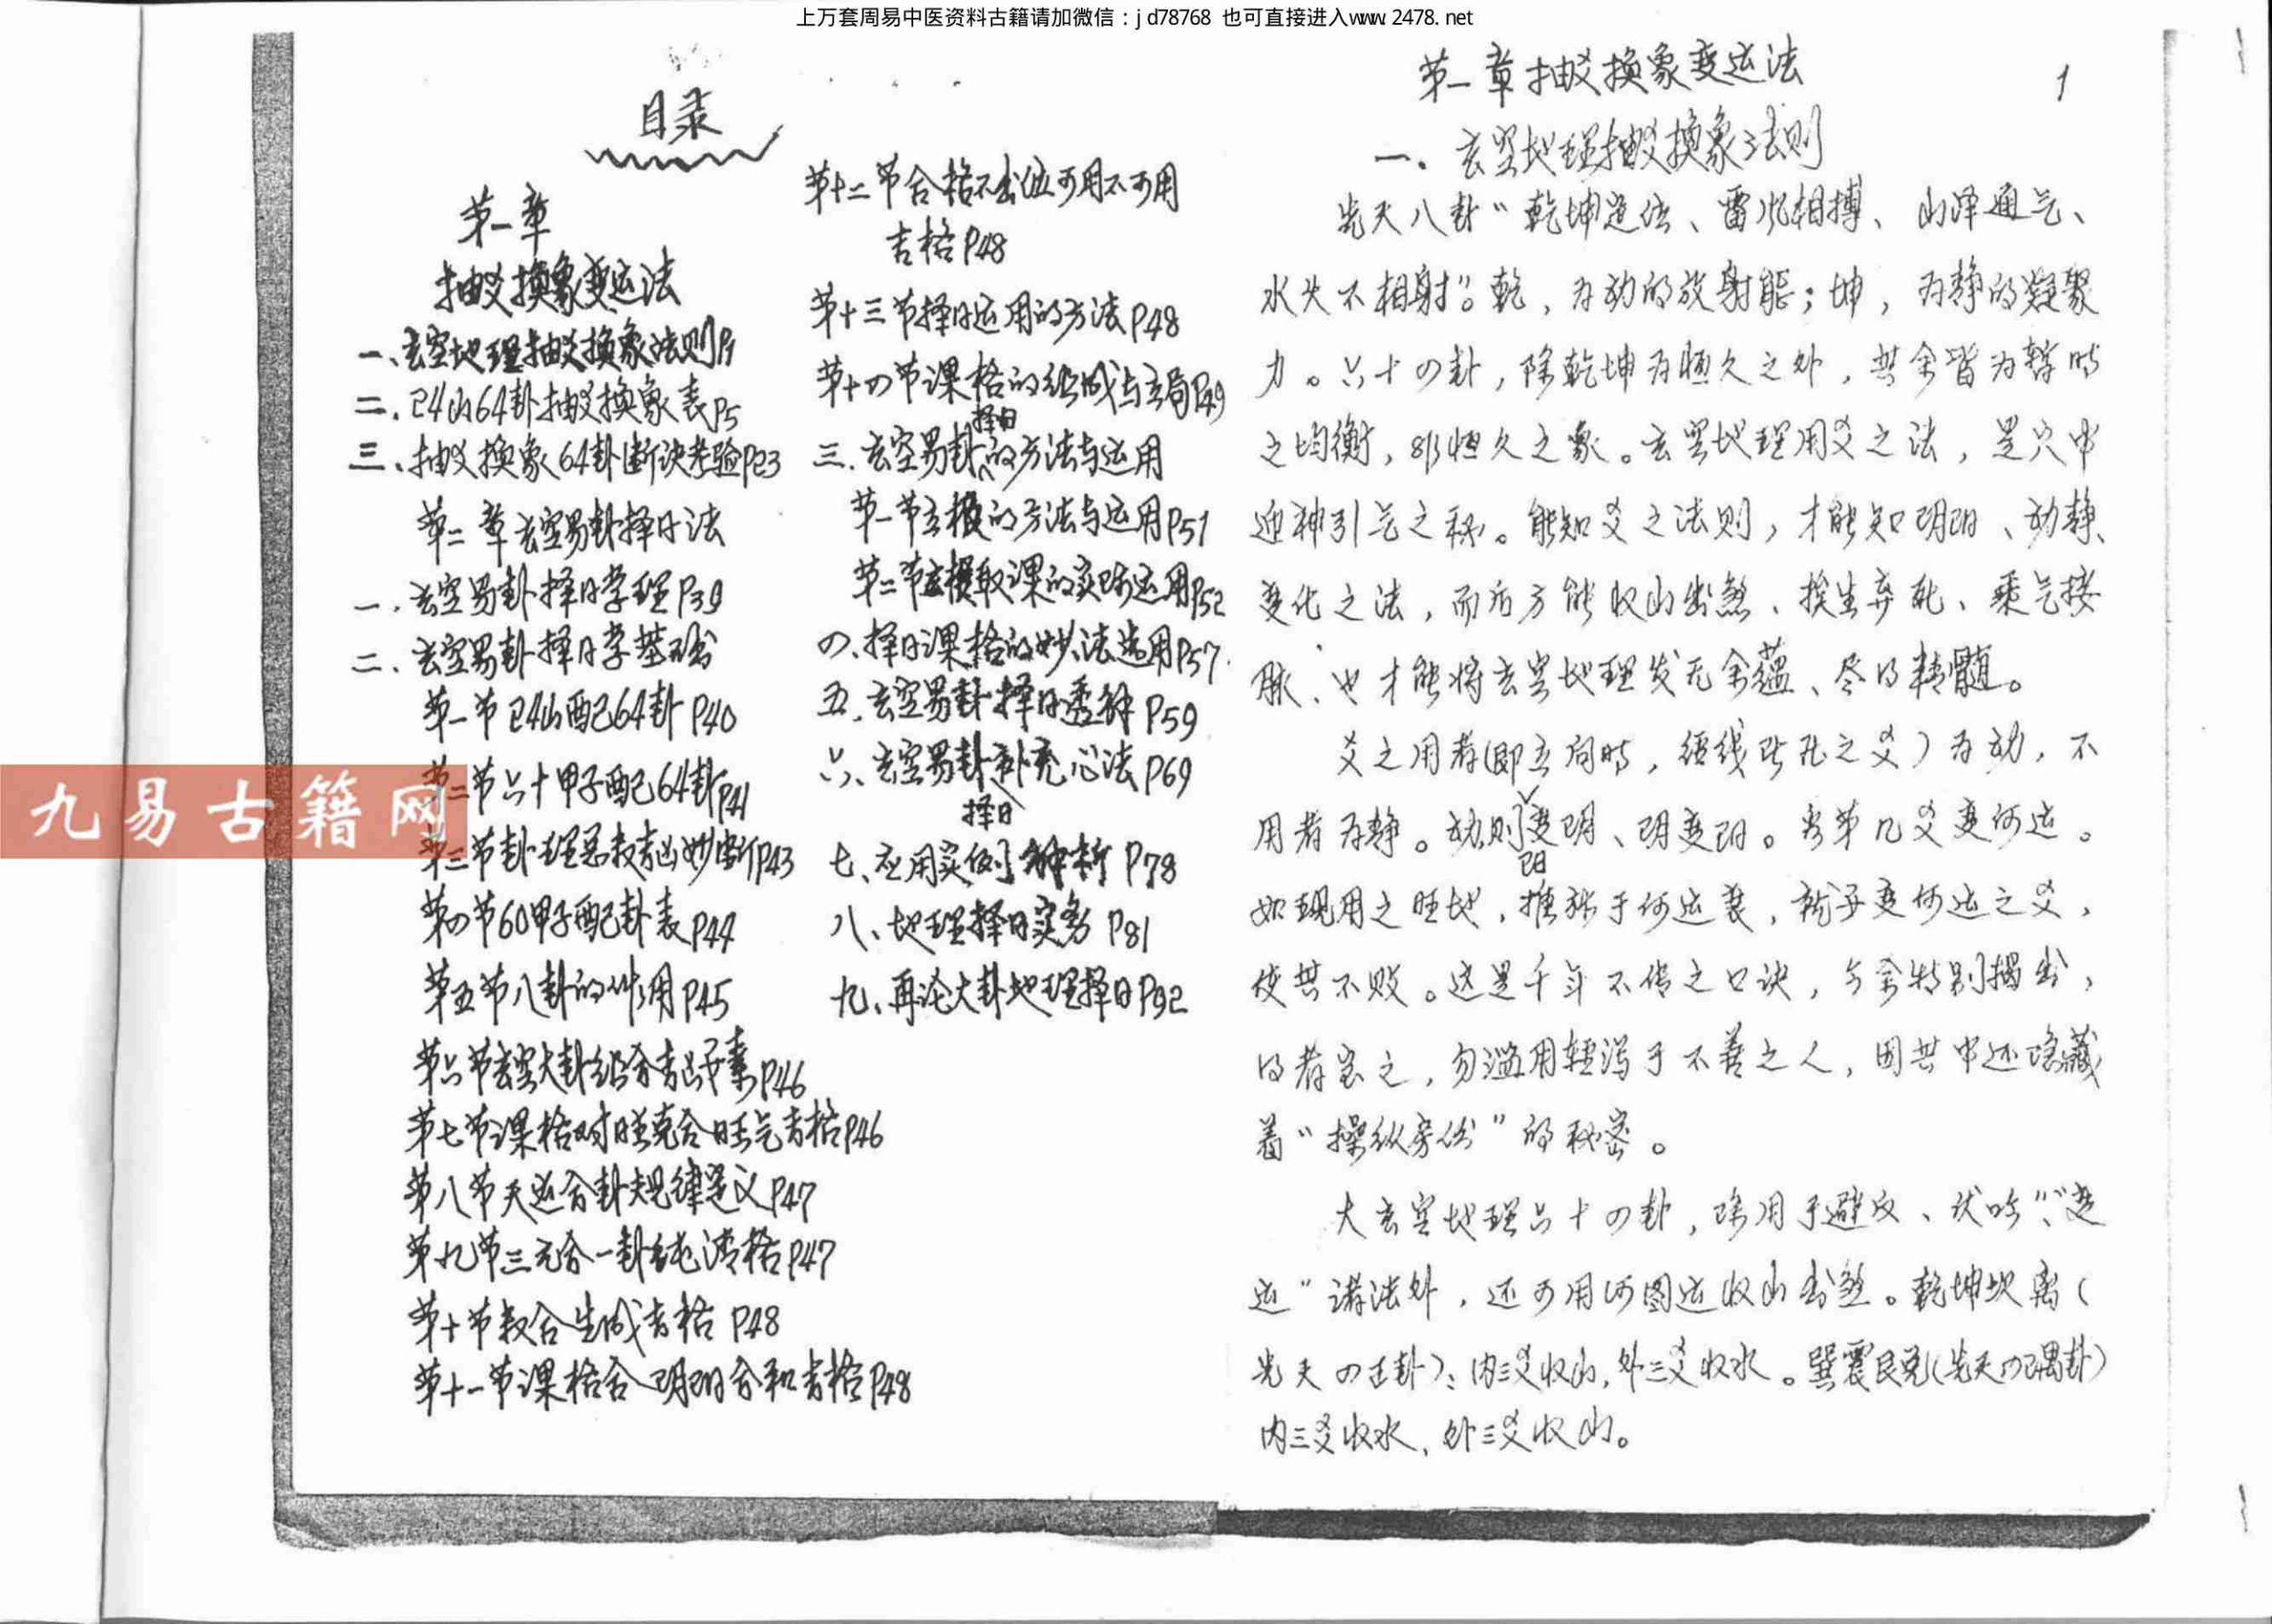 上万套周易中医资料古籍请加微信：jd78768 也可直接进入www.2478.net
目录
第一章
抽爻换象变运法
一、玄空地理抽爻换象法则P1
二、24山64卦抽爻换象表P5
三、抽爻换象64卦断诀考验P23
第二章玄空易卦择日法
一、玄空易卦择日学理P39
二、玄空易卦择日学基础
第一节24山配64卦P40
第二节六十甲子配64卦P41
第三节卦理星教吉凶妙断P43
第四节60甲子配卦表P44
第五节八卦的作用P45
第六节玄空大卦组合吉凶要素P46
第七节课格对时生克合旺气吉格P46
第八节天运合卦规律定义P47
第九节三元合一卦纯清格P47
第十节数合生成吉格P48
第十一节课格合阴阳合和吉格P48
第十二节合格不出位可用不可用
吉格P48
第十三节择日运用的方法P48
第十四节课格的组成与立局P49
三、玄空易卦择日的方法与运用
第一节立极的方法与运用P51
第二节立极取课的实际运用P52
四、择日课格的妙法选用P57
五、玄空易卦择日透解P59
六、玄空易卦择日补充心法P69
七、应用实例解析P78
八、地理择日实务P81
九、再论大卦地理择日P92
九易古籍网
1
第一章抽爻换象变运法
一、玄空地理抽爻换象法则
先天八卦“乾坤定位、雷风相搏、山泽通气、
水火不相射”。乾，为动的放射能；坤，为静的凝聚
力。六十四卦，除乾坤为恒久之外，其余皆为暂时
之均衡，非恒久之象。玄空地理用爻之法，是穴中
迎神引气之秘。能知爻之法则，才能知阴阳、动静、
变化之法，而后方能收山出煞、挨生弃死、乘气接
脉、也才能将玄空地理发无余蕴、尽得精髓。
爻之用者（即立向时，经线所孔之爻）为动，不
用者为静。动则阳变阴、阴变阳。看第几爻变何运。
如现用之旺地，推排于何运衰，就予变何运之爻，
使其不败。这是千年不传之口诀，今余特别揭出，
得者宝之，勿滥用轻泻于不善之人，因其中还隐藏
着“操纵房份”的秘密。
大玄空地理六十四卦，除用于避反、伏吟”、“变
运”诸法外，还可用河图运收山出煞。乾坤坎离（
先天四正卦）：内三爻收山，外三爻收水。巽震艮兑（先天四隅卦）
内三爻收水，外三爻收山。